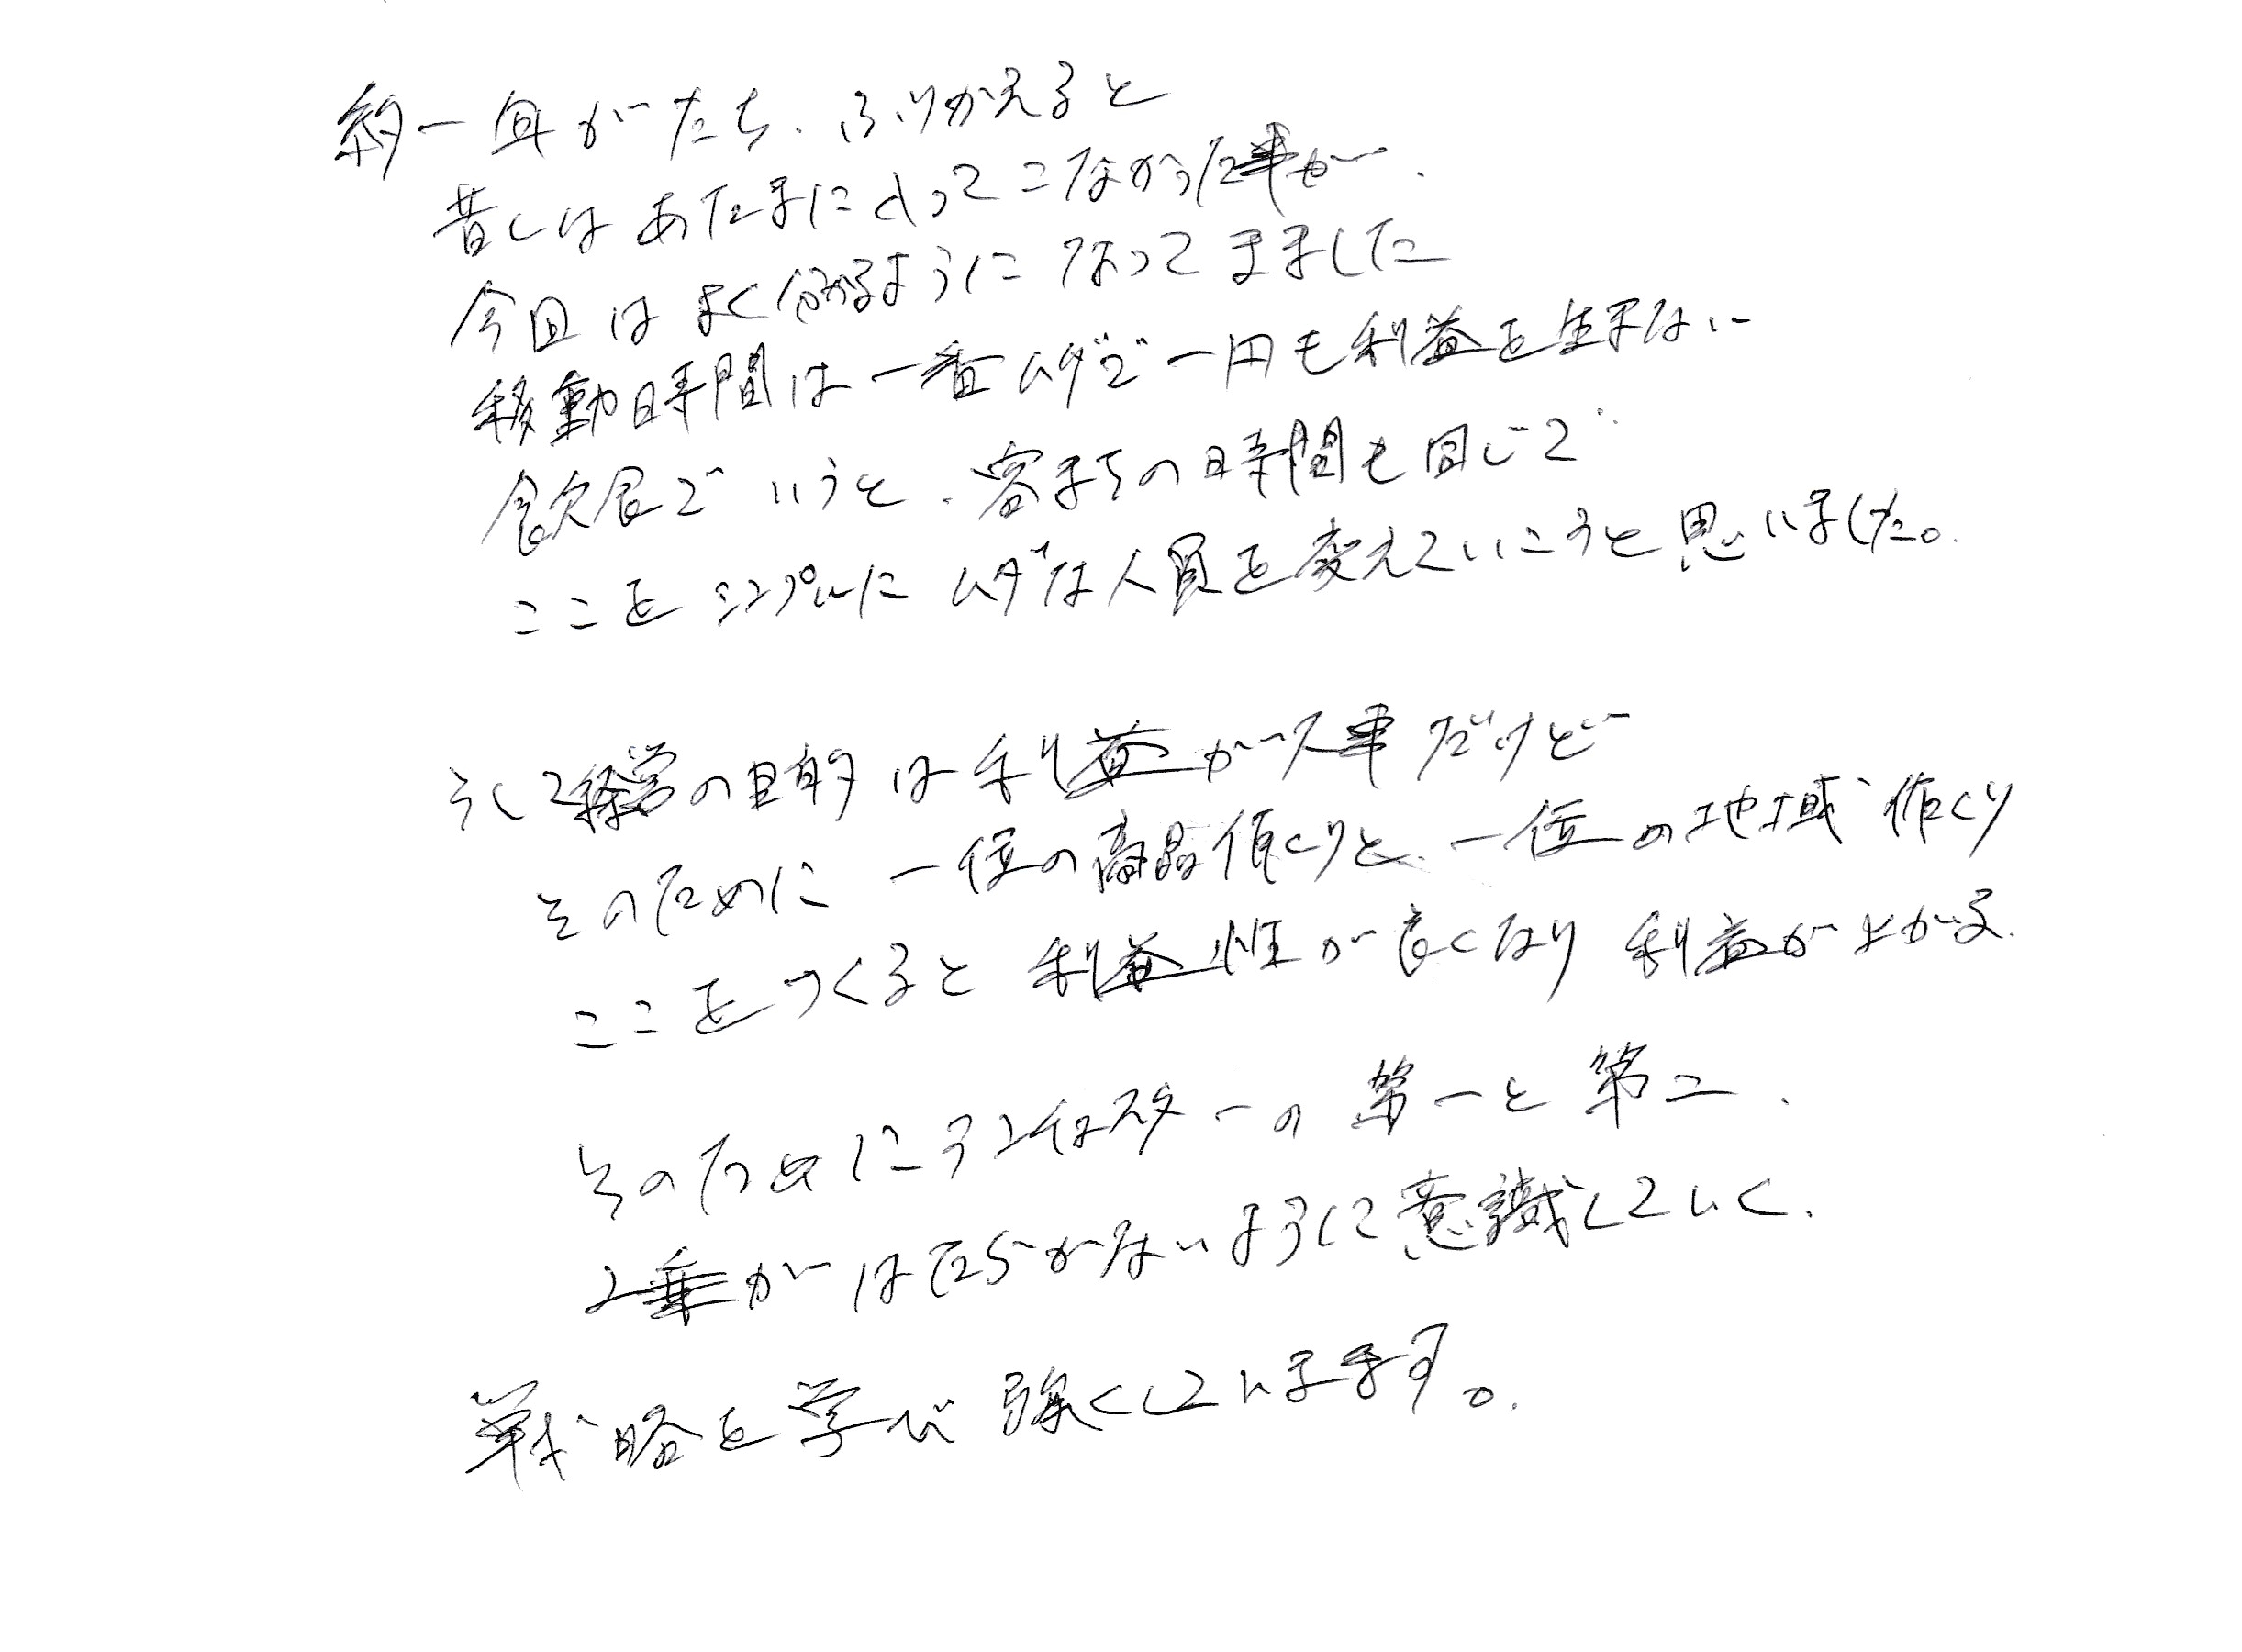 約一年がたち、ふりかえると
昔しは あたまに入ってこなかった事が、
今回は よく分かるように なってきました
移動時間は 一番ムダで 一円も利益を生まない
飲食で いうと、客まちの時間も同じで
ここを シンプルに ムダな人員を変えていこうと思いました。
そして経営の目的は利益が大事だけど
そのために 一位の商品作くりと、一位の地域作くり
ここをつくると 利益性が良くなり 利益が上がる.
そのためにランチェスターの 第一と第二、
2乗がはたらかないように意識していく.
戦略を学び 強くしていきます。